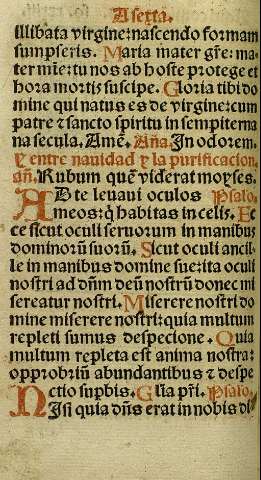 A sexta.
illibata virgine: nascendo formam
sumpseris. Maria mater gr̃e: ma-
ter mie: tu nos ab hoste protege et
hora mortis suscipe. Gloria tibi do
mine qui natus es de virgine: cum
patre ⁊ sancto spiritu in sempiterna
na secula. Amẽ. Aña. In odorem.
y entre nauidad y la purificacion
añ. Rubum quẽ viderat moyses.
AD te leuaui oculos Psalo.
meos: q̃ habitas in celis. Ec
ce sicut oculi seruorum in manibus
dominorũ suorũ. Sicut oculi ancil-
le in manibus domine sue: ita oculi
nostri ad dñm deũ nostrũ donec mi
sereatur nostri. Miserere nostri do
mine miserere nostri: quia multum
repleti sumus despecione. Quia
multum repleta est anima nostra:
opprobriũ abundantibus ⁊ despe
ctio supbis. Gl̃ia pr̃i. Psalo.
NIsi quia dñs erat in nobis di